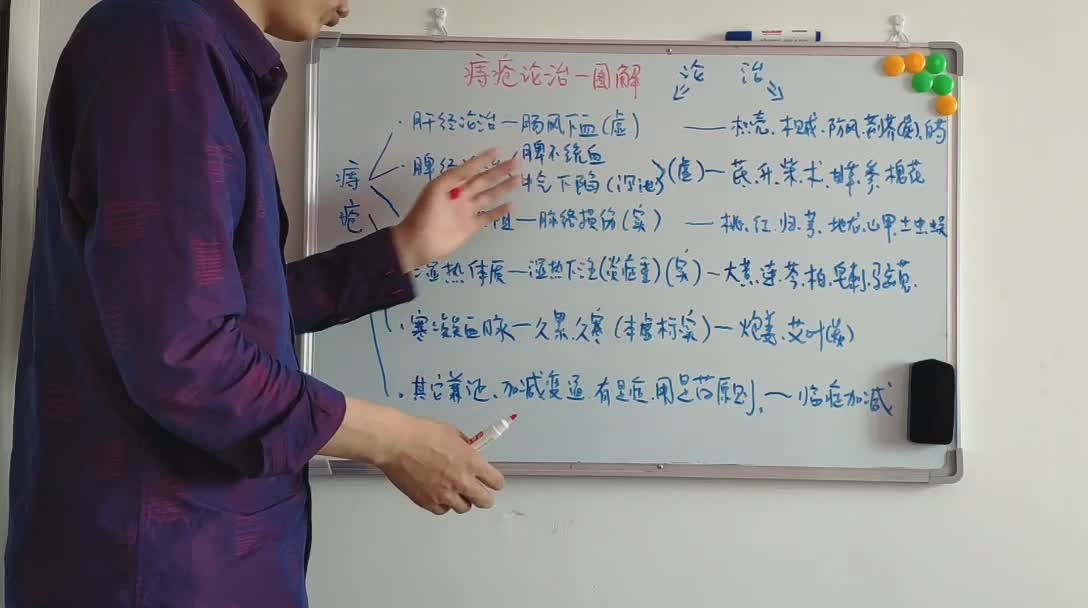 痔疮论治一图解
论 治
痔疮
·肝经论治一肠风下血(虚) ——枳壳、防风、荆芥(炭)
·脾经 脾不统血
下陷 (虚)一芪、升、柴、术、参、槐花
阻一脉络损伤(实) ——桃、红、归、芎、地龙、山甲、土虫
湿热体质一湿热下注(炎症重)(实)一大黄、连、芩、柏、皂刺
·寒凝血脉一久累久寒(本虚标实)一炮姜、艾叶(炭)
·其它兼证、加减变通、有是症用是药原则、一临症加减